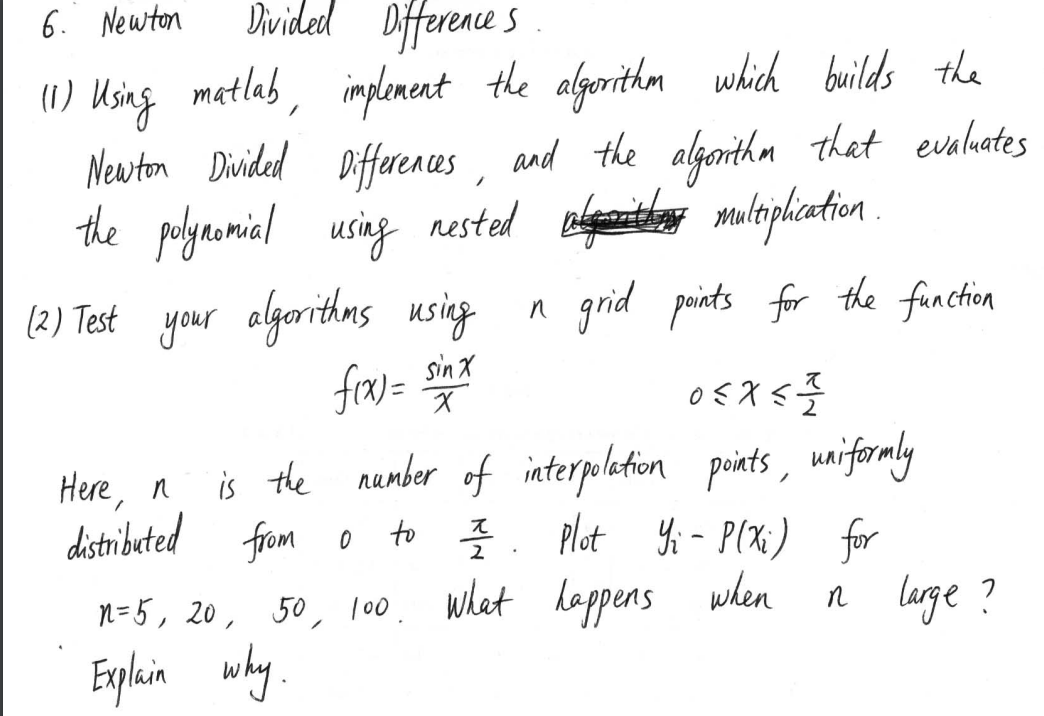 6. Newton Divided Differences.
(1) Using matlab, implement the algorithm which builds the
Newton Divided Differences, and the algorithm that evaluates
the polynomial using nested multiplication.
(2) Test your algorithms using n grid points for the function
f(x) = sin x / x    0 ≤ x ≤ π/2
Here, n is the number of interpolation points, uniformly
distributed from 0 to π/2. Plot yᵢ - P(xᵢ) for
n=5, 20, 50, 100. What happens when n large?
Explain why.